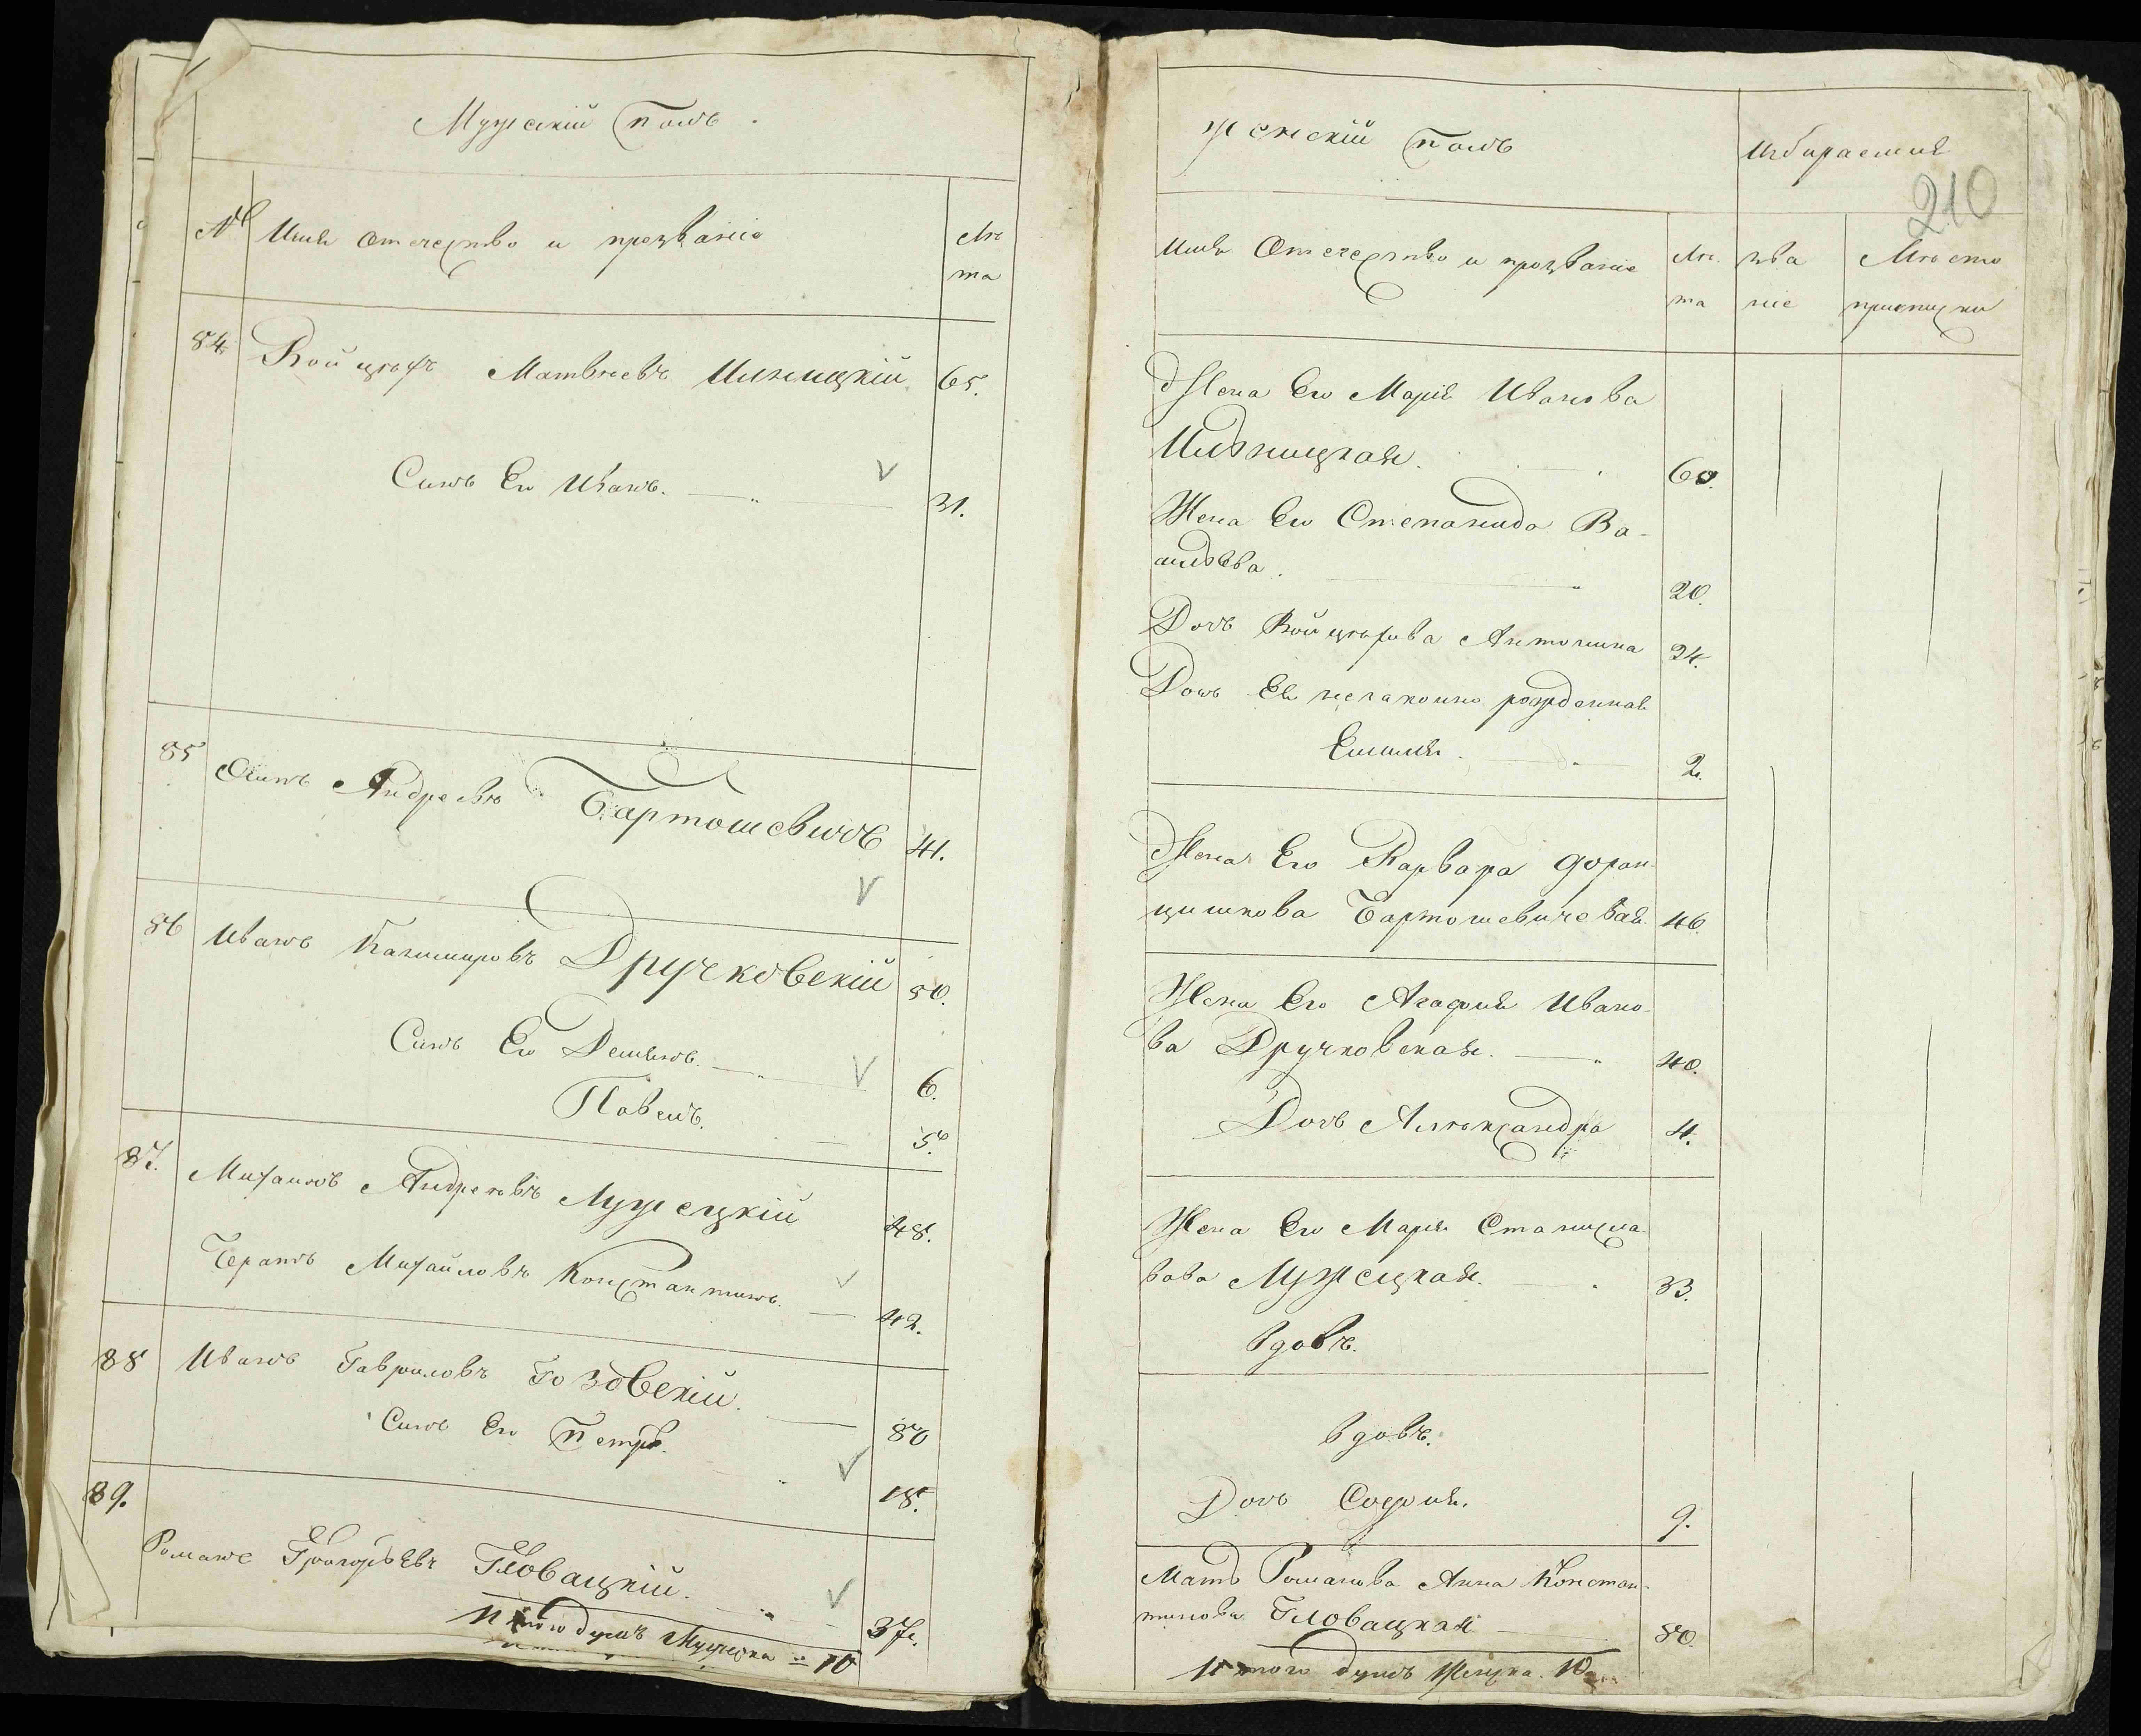 Мужескій полъ.
№ Имя отечество и прозваніе Лѣ
та
84. Войцѣхъ Матвѣевъ Ильницкій 65.
Сынъ Его Иванъ. 31.
85 Осипъ Андреевъ Бартошевичъ 41.
86 Иванъ Казимировъ Дручковскій 50.
Сынъ Его Демьянъ. 6.
Павелъ. 5.
87. Михаилъ Андреевъ Лужецкій 48.
Братъ Михайловъ Константинъ. 42.
88 Иванъ Гавриловъ Гозовскій. 80
Сынъ Его Петръ. 18.
89. Романъ Григорьевъ Гловацкій. 37.
Итого душъ Мужеска = 10
Женскій полъ Избираемыя
210
Имя Отечество и прозваніе Лѣ зва Мѣсто
та ніе приписки
Жена Его Марія Иванова
Ильницкая. 60.
Жена Его Степанида Ва-
сильева. 20.
Дочь Войцѣхова Антонина 24.
Дочь Ея незаконно рожденная
Емилія. 2.
Жена Его Варвара Фран-
цишкова Бартошевичевая 46.
Жена Его Агафия Ивано-
ва Дручковская. 40.
Дочь Алѣксандра 4.
Жена Его Марія Станисла-
вова Лужецкая. 33.
вдовъ.
вдовъ.
Дочь София. 9.
Мать Романова Анна Констан-
тинова Гловацкая 80.
Итого душъ Женска. 10